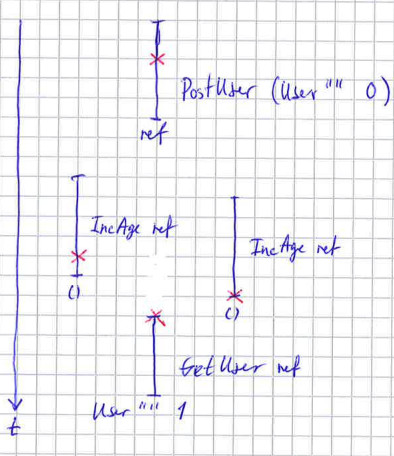 PostUser (User "" 0)
ref
IncAge ref
IncAge ref
()
()
GetUser ref
User "" 1
t